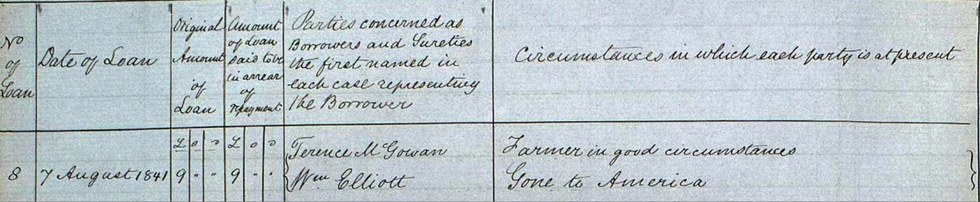 No of Loan
Date of Loan
Original Amount of Loan
Amount of Loan said to be in arrear of repayment
Parties concerned as Borrowers and Sureties the first named in each case representing the Borrower
Circumstances in which each party is at present
£ s d £ s d
8 7 August 1841 9 - - 9 - - Terence McGowan Farmer in good circumstances
Wm Elliott Gone to America